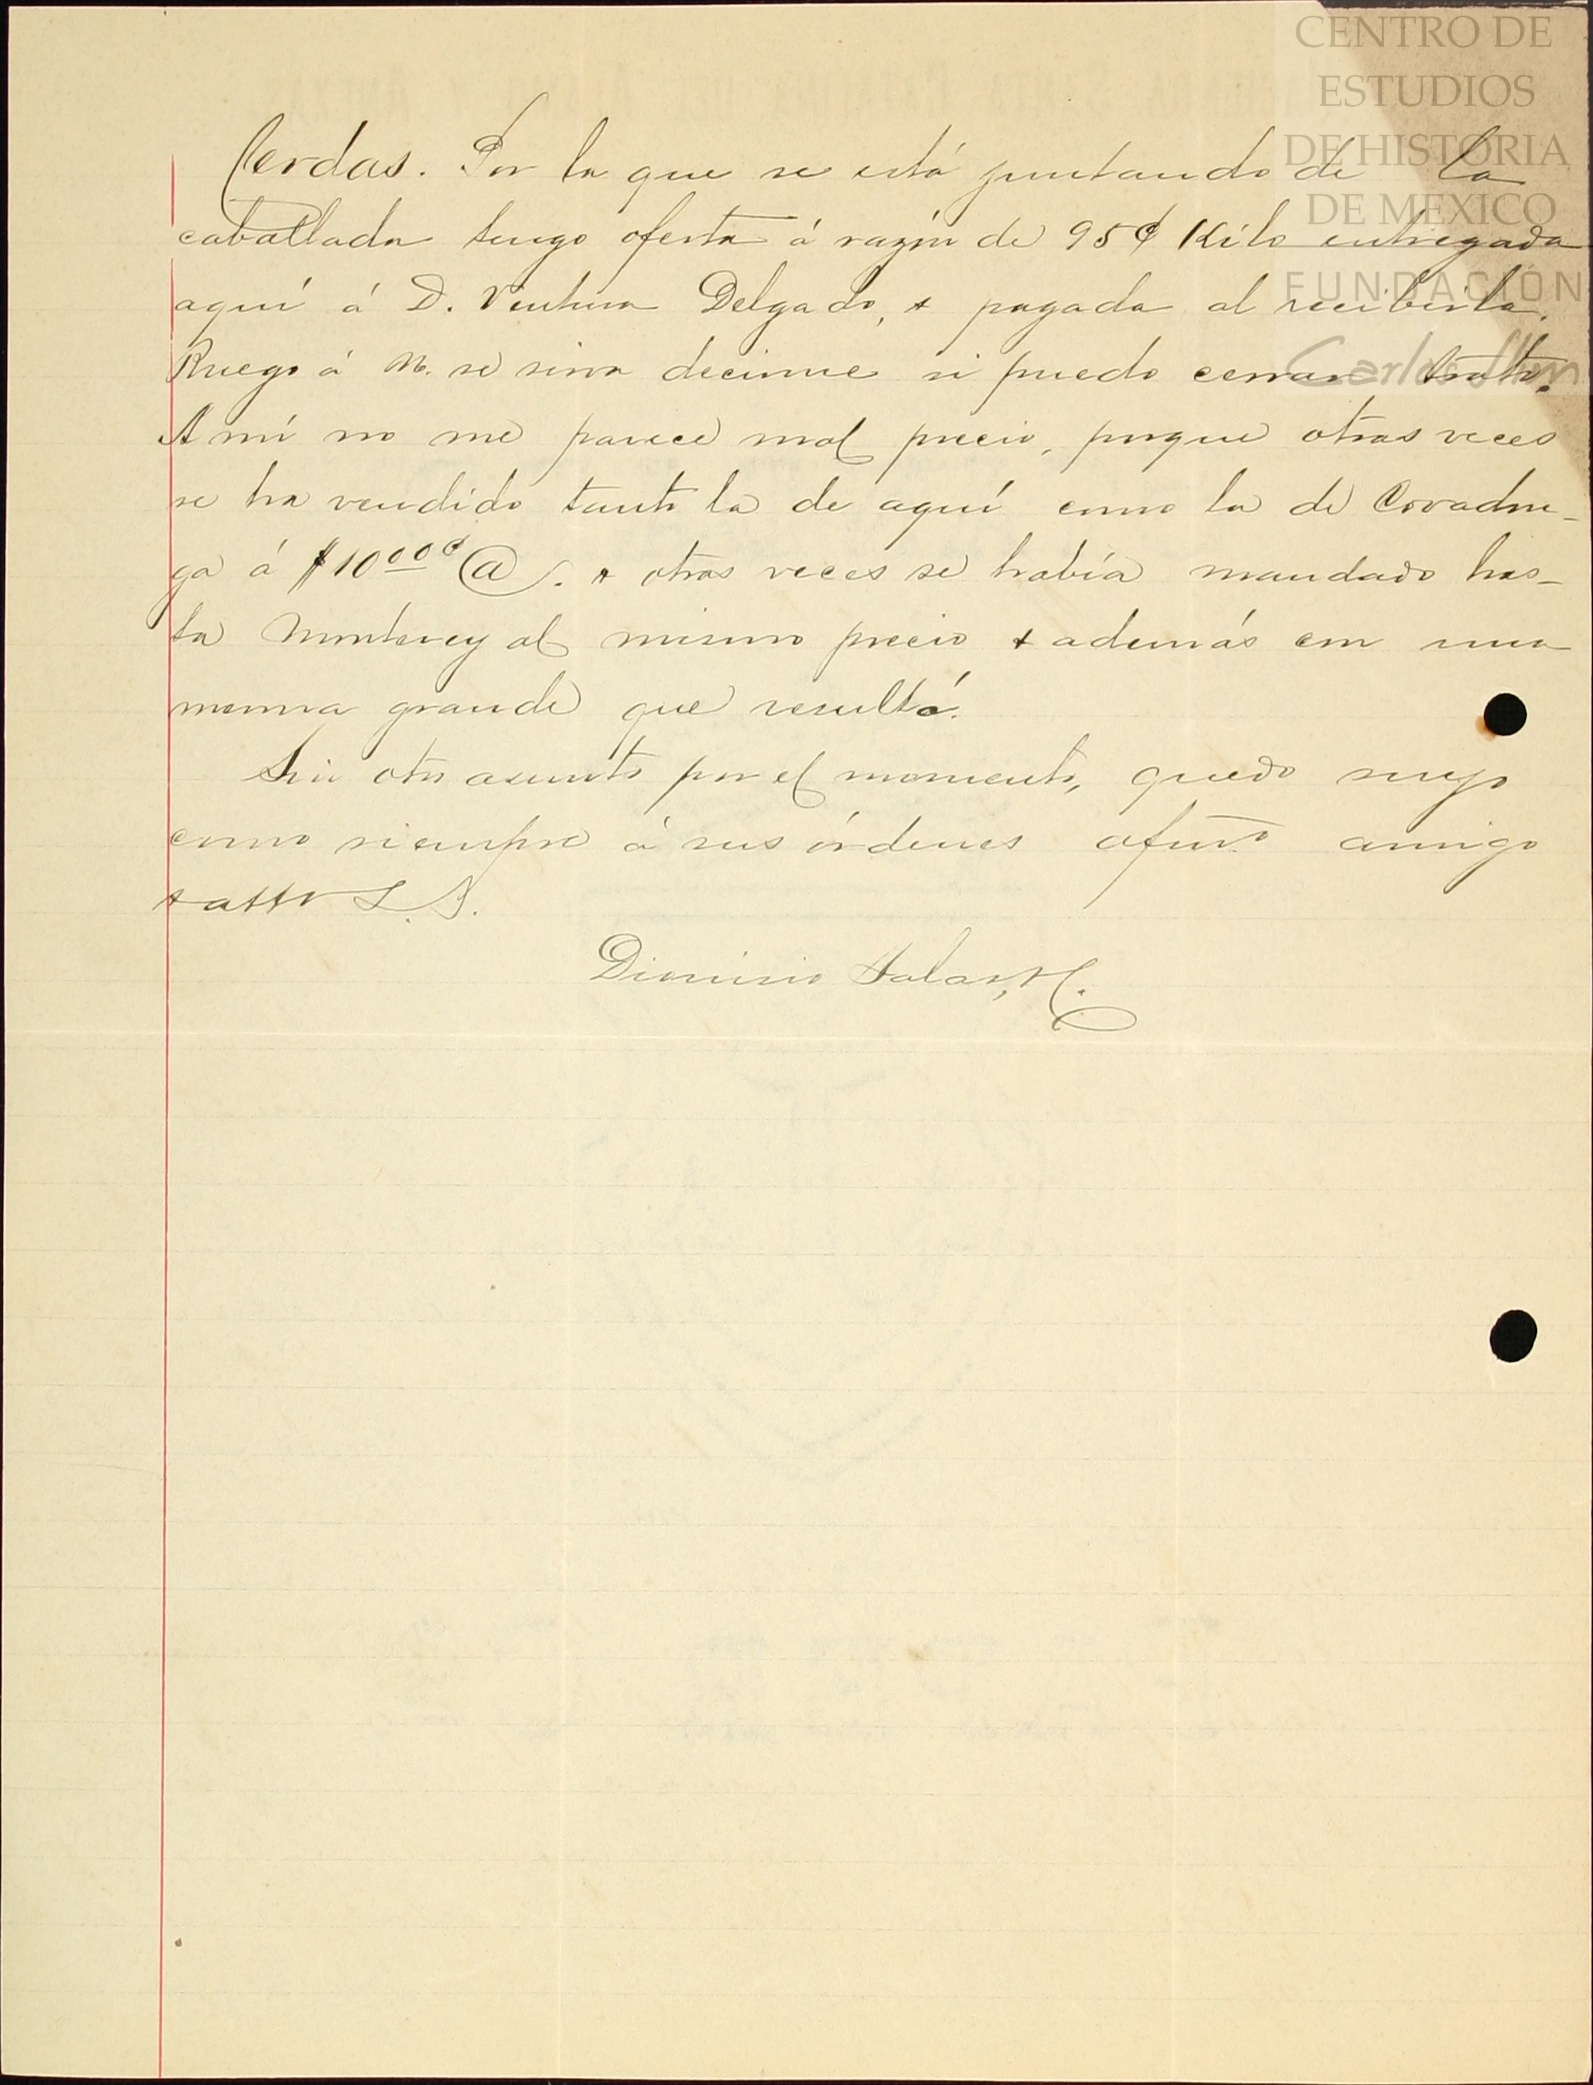 CENTRO DE
ESTUDIOS
DE HISTORIA
DE MEXICO
FUNDACIÓN
Carlos Slim
Cerdas. Por la que se está juntando de la
caballada tengo oferta á razón de 95¢ Kilo entregada
aquí á D. Ventura Delgado, y pagada al recibirla.
Ruego á U. se sirva decirme si puedo cerrar trato.
A mí no me parece mal precio, porque otras veces
se ha vendido tanto la de aquí como la de Covadon-
ga á $10.00 @. y otras veces se había mandado has-
ta Monterey al mismo precio y además con una
merma grande que resultó.
Sin otro asunto por el momento, quedo suyo
como siempre á sus órdenes afmo amigo
y atto S. S.
Dionisio Salas,